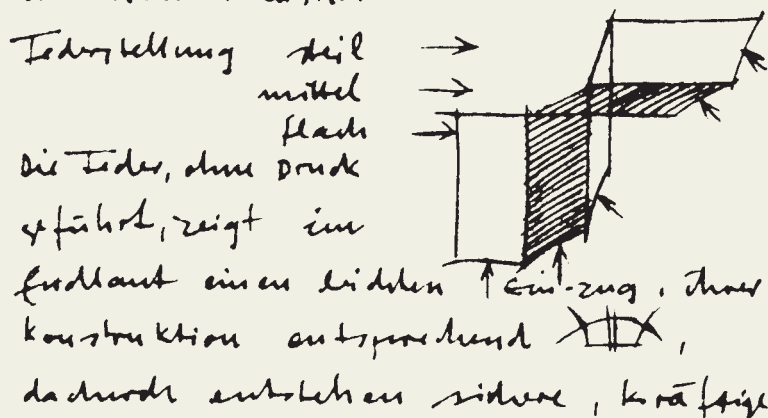 Federstellung steil
mittel
flach
Die Feder, ohne Druck
geführt, zeigt im
Endlaut einen leichten Ein-zug, ihrer
Konstruktion entsprechend ,
dadurch entstehen sichere, kräftige